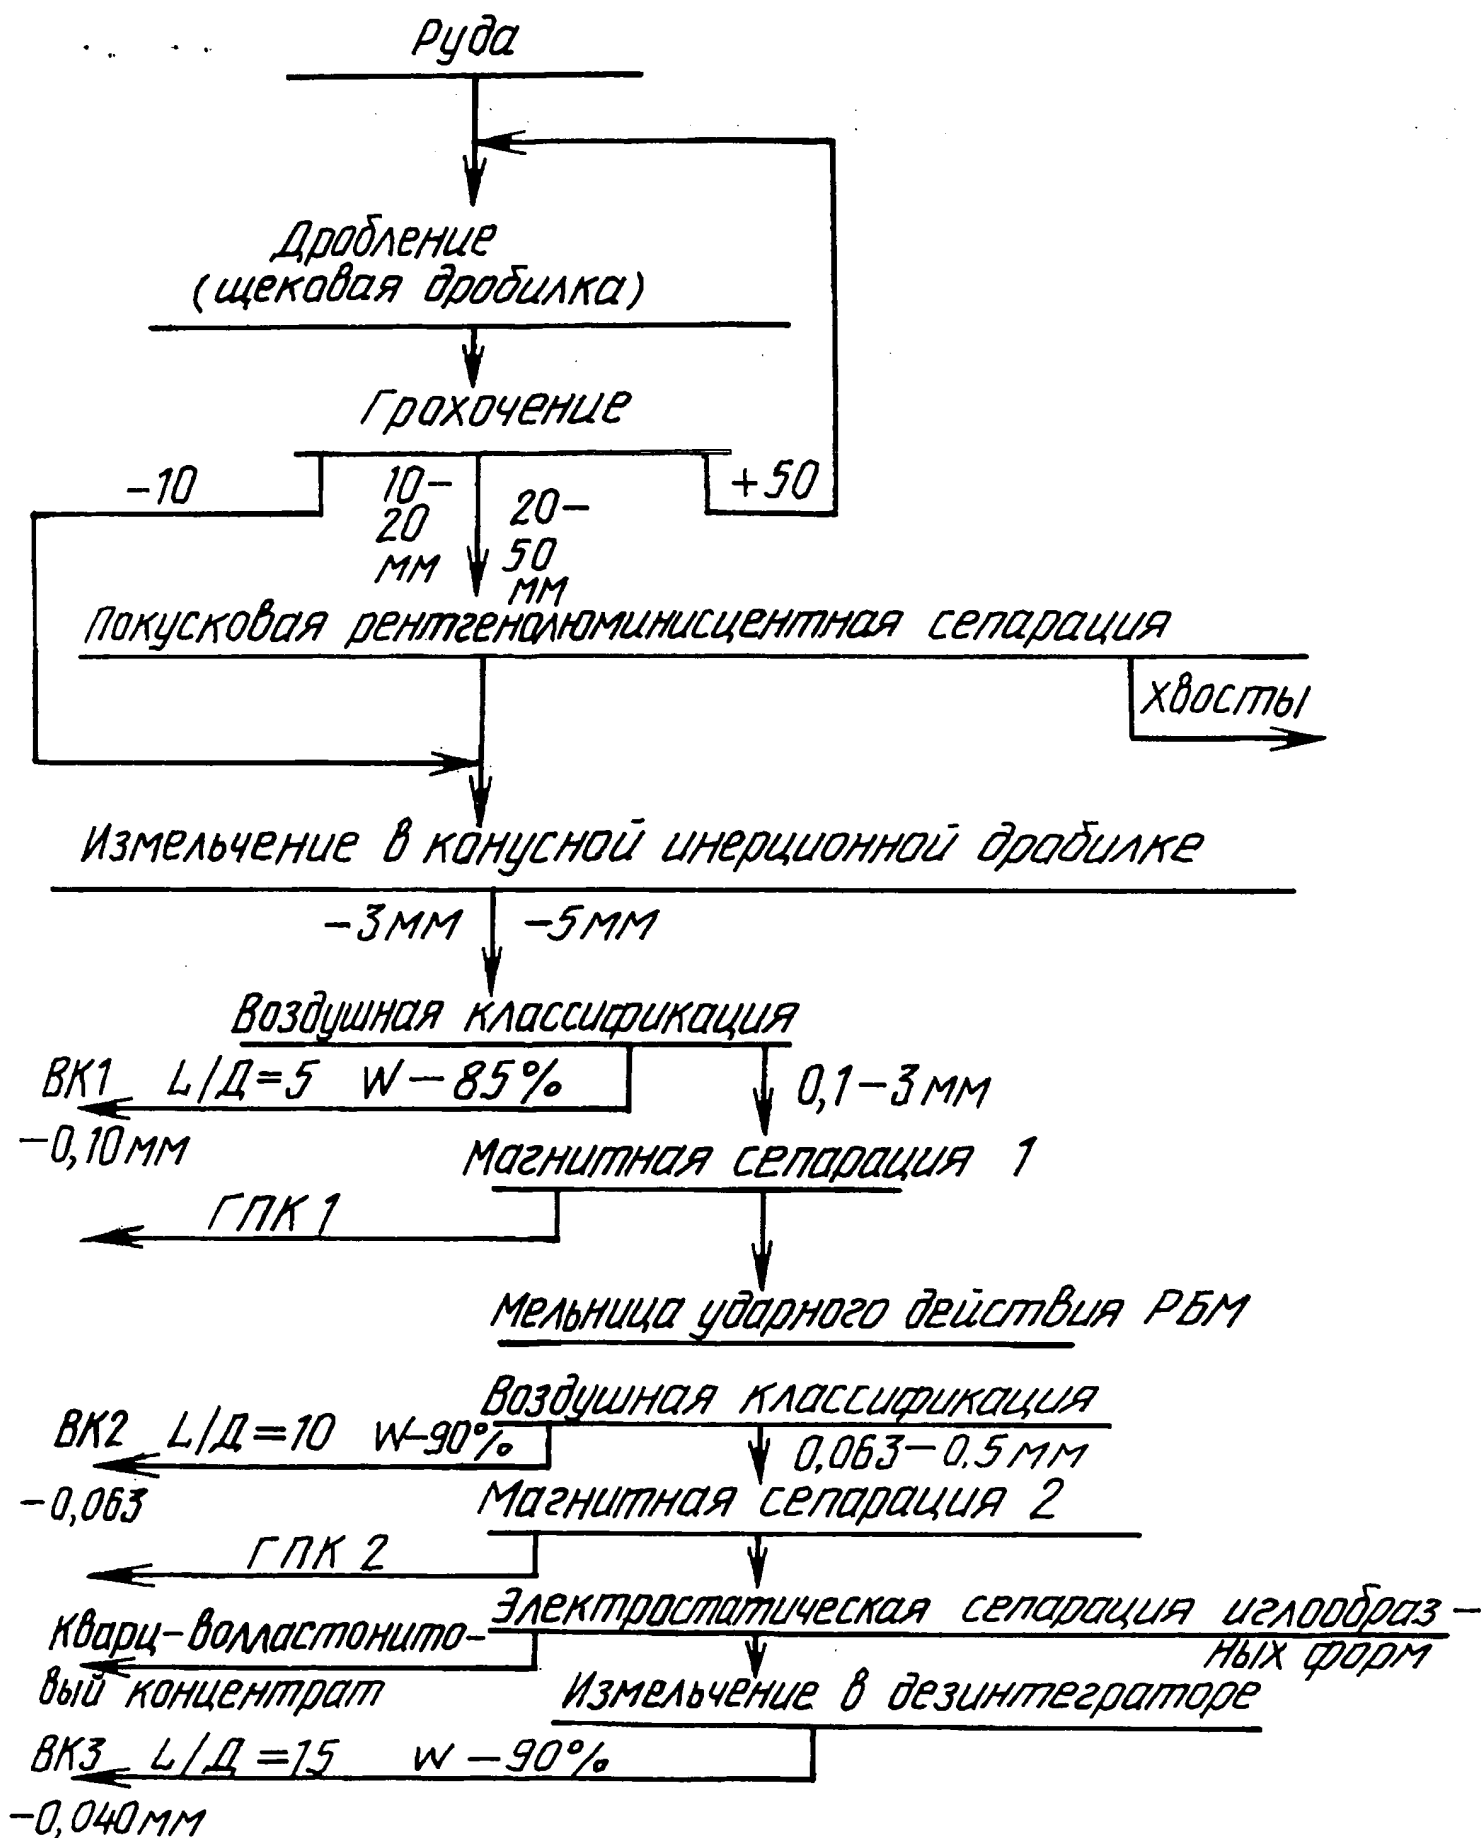 Руда
Дробление
(щековая дробилка)
Грохочение
-10
10-
20
мм
20-
50
мм
+50
Покусковая рентгенолюминисцентная сепарация
хвосты
Измельчение в конусной инерционной дробилке
-3мм -5мм
Воздушная классификация
ВК1 L/Д=5 W-85%
-0,10мм
0,1-3мм
Магнитная сепарация 1
ГПК 1
Мельница ударного действия РБМ
Воздушная классификация
ВК2 L/Д=10 W-90%
-0,063
0,063-0.5мм
Магнитная сепарация 2
ГПК 2
Электростатическая сепарация иглообраз-
ных форм
Кварц-волластонито-
вый концентрат
Измельчение в дезинтеграторе
ВК3 L/Д=15 W-90%
-0,040мм